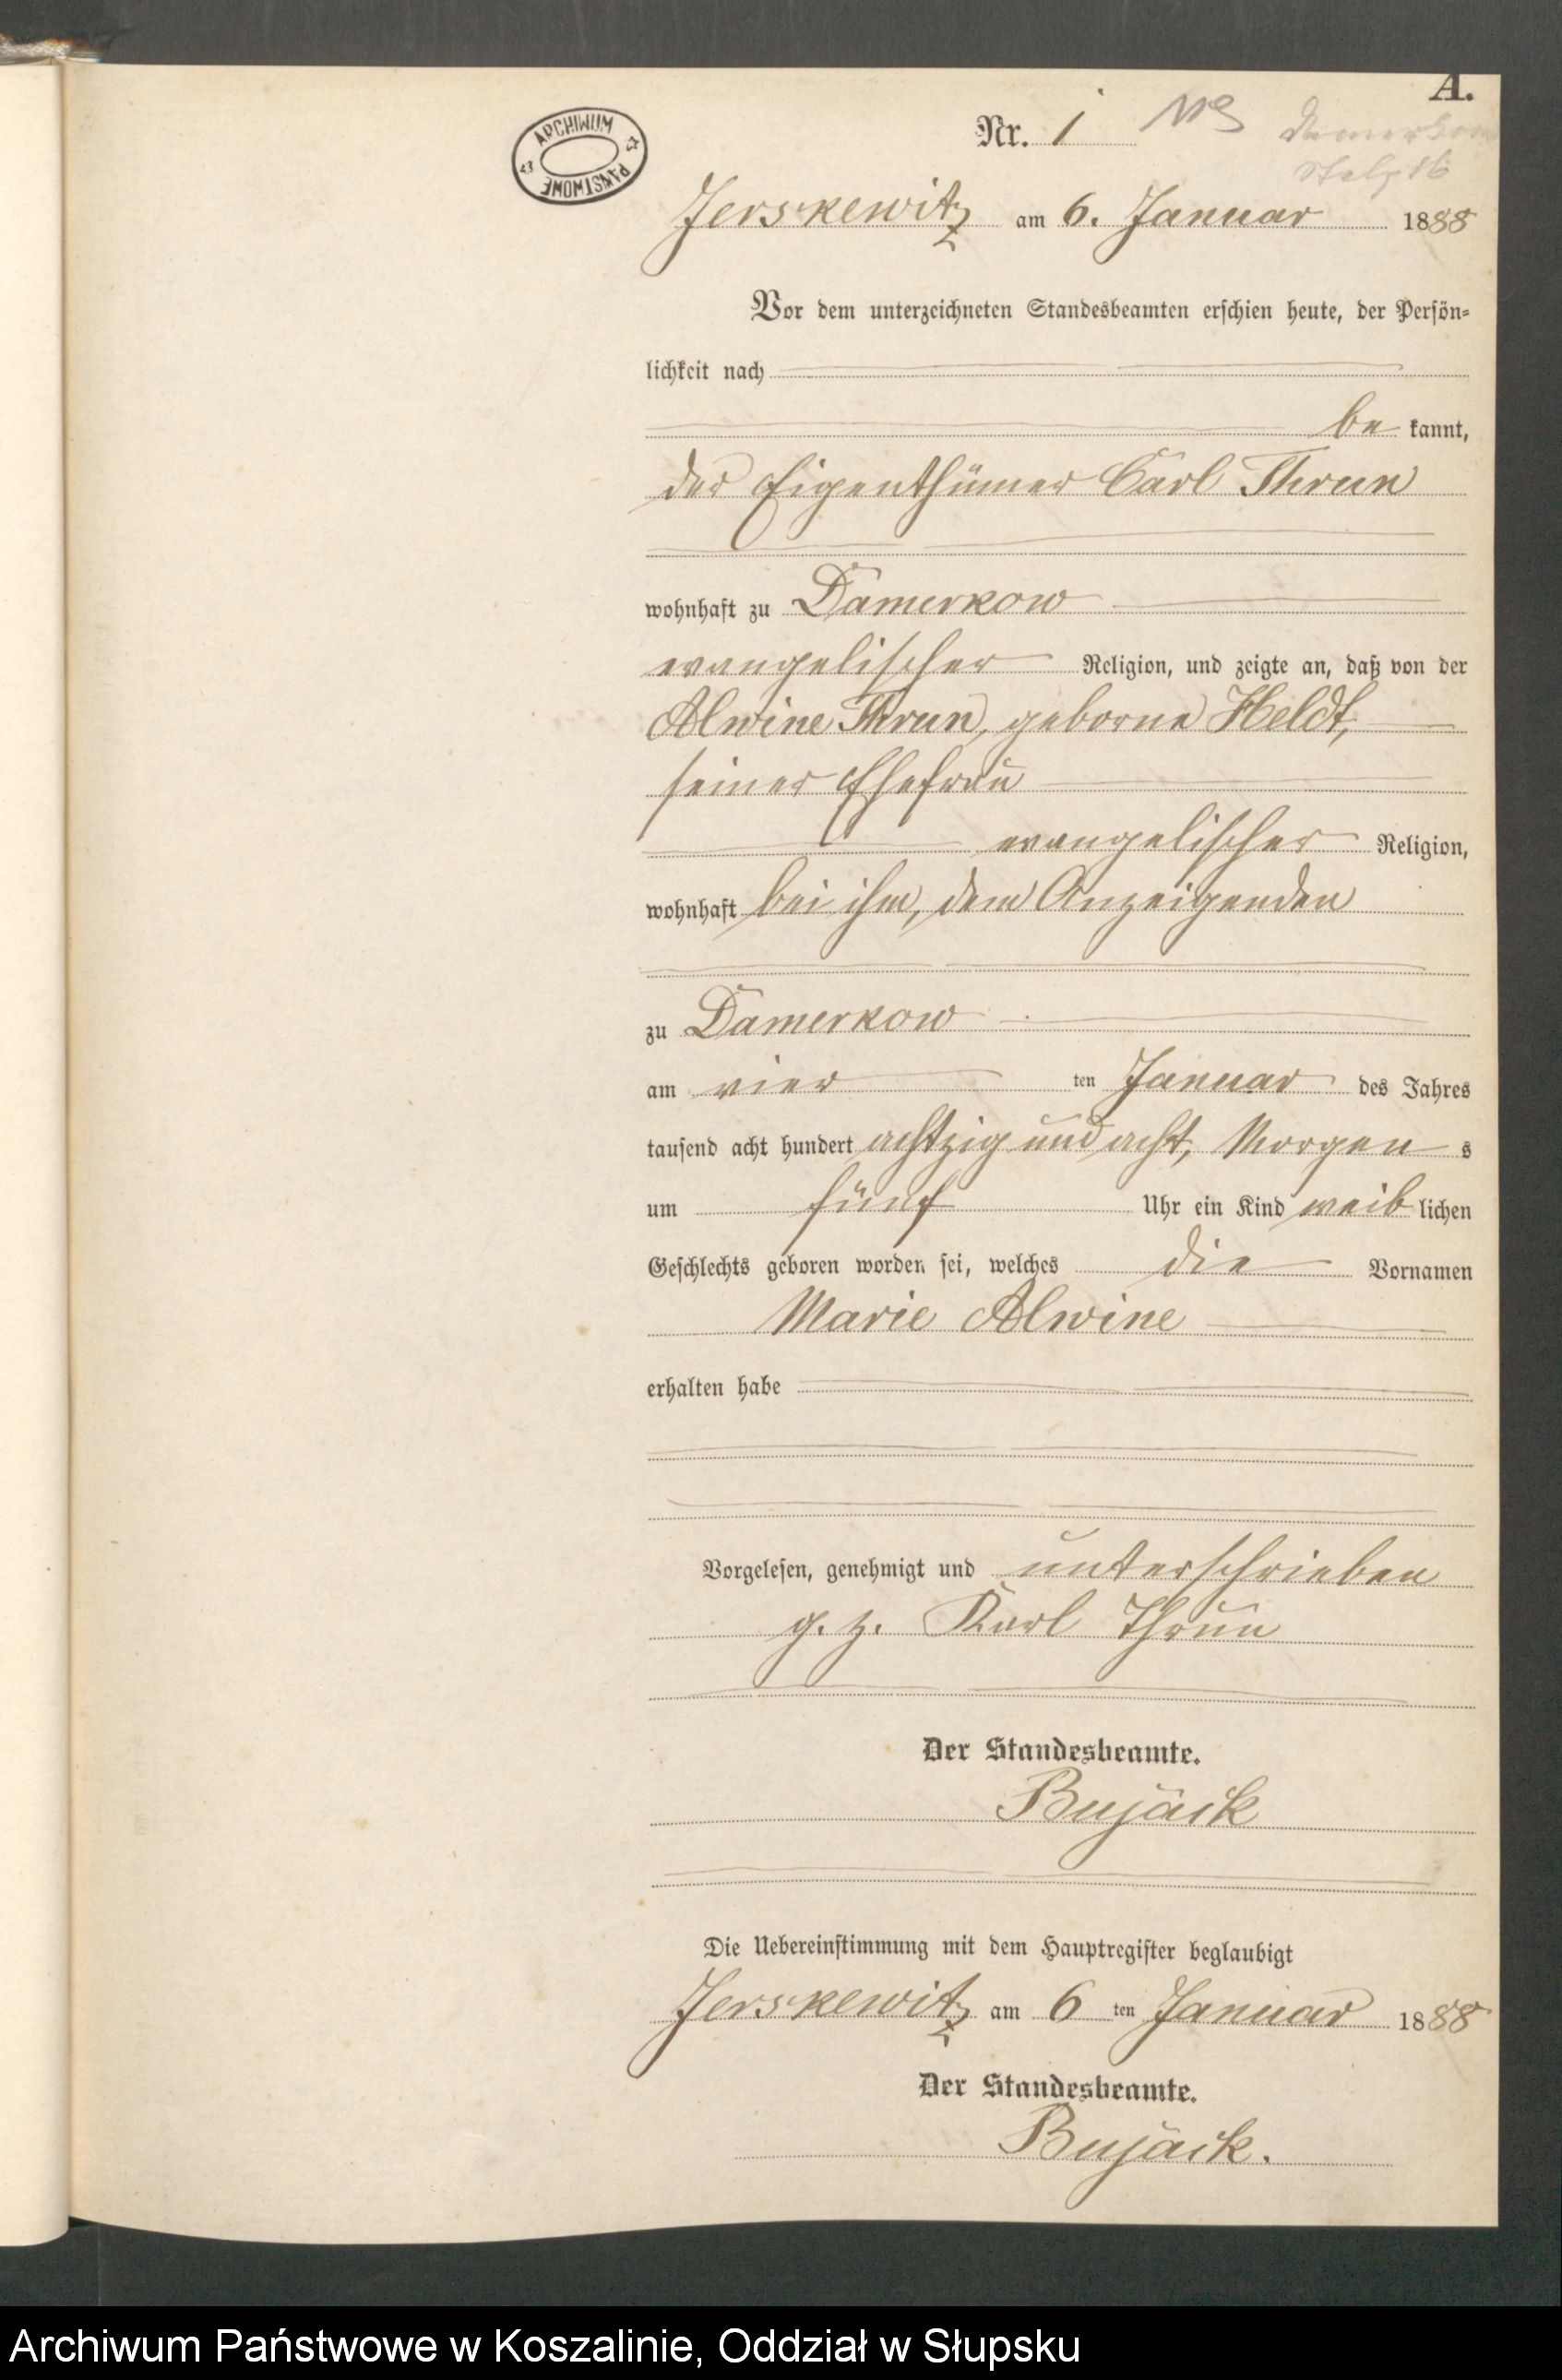 A.
ARCHIWUM PAŃSTWOWE
Nr. 1
Damerkow
Jerskewitz am 6. Januar 1888
Vor dem unterzeichneten Standesbeamten erschien heute, der Persön-
lichkeit nach
be kannt,
der Eigenthümer Carl Thrun
wohnhaft zu Damerkow
evangelischer Religion, und zeigte an, daß von der
Alwine Thrun, geborne Heldt,
seiner Ehefrau
evangelischer Religion,
wohnhaft bei ihm, dem Anzeigenden
zu Damerkow
am vier ten Januar des Jahres
tausend acht hundert achtzig und acht, Morgen s
um fünf Uhr ein Kind weib lichen
Geschlechts geboren worden sei, welches die Vornamen
Marie Alwine
erhalten habe
Vorgelesen, genehmigt und unterschrieben
g. z. Karl Thrun
Der Standesbeamte.
Bujack
Die Uebereinstimmung mit dem Hauptregister beglaubigt
Jerskewitz am 6 ten Januar 1888
Der Standesbeamte.
Bujack.
Archiwum Państwowe w Koszalinie, Oddział w Słupsku